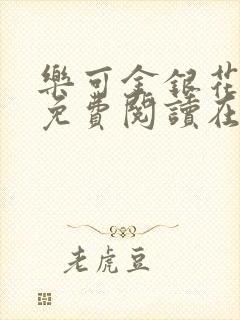 樂可金銀花
免費閱讀在
老虎豆